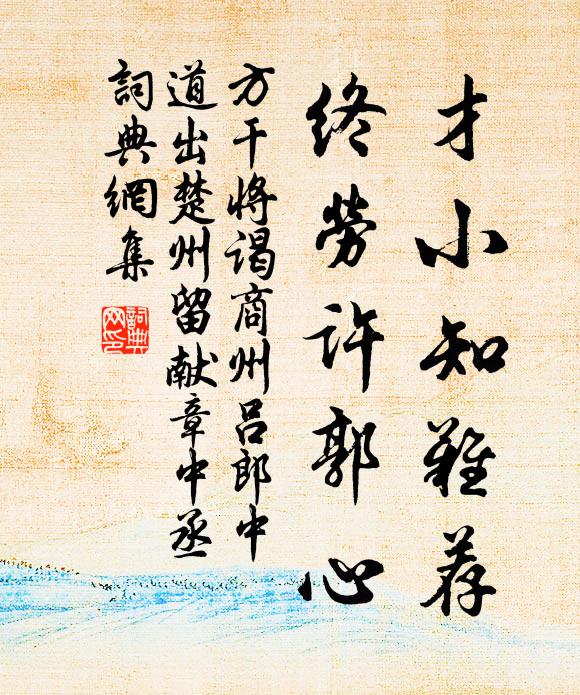 才小知難荐
終勞許郭心
方干将谒商州吕郎中
道出楚州留献章中丞
詞典網集
詞典
网印